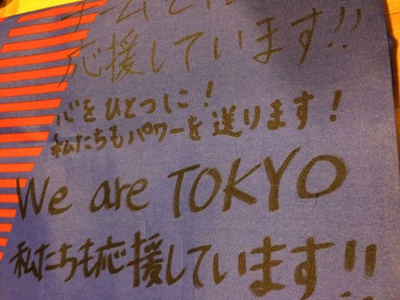 応援しています!!
心をひとつに!
私たちもパワーを送ります!
We are TOKYO
私たちも応援しています!!